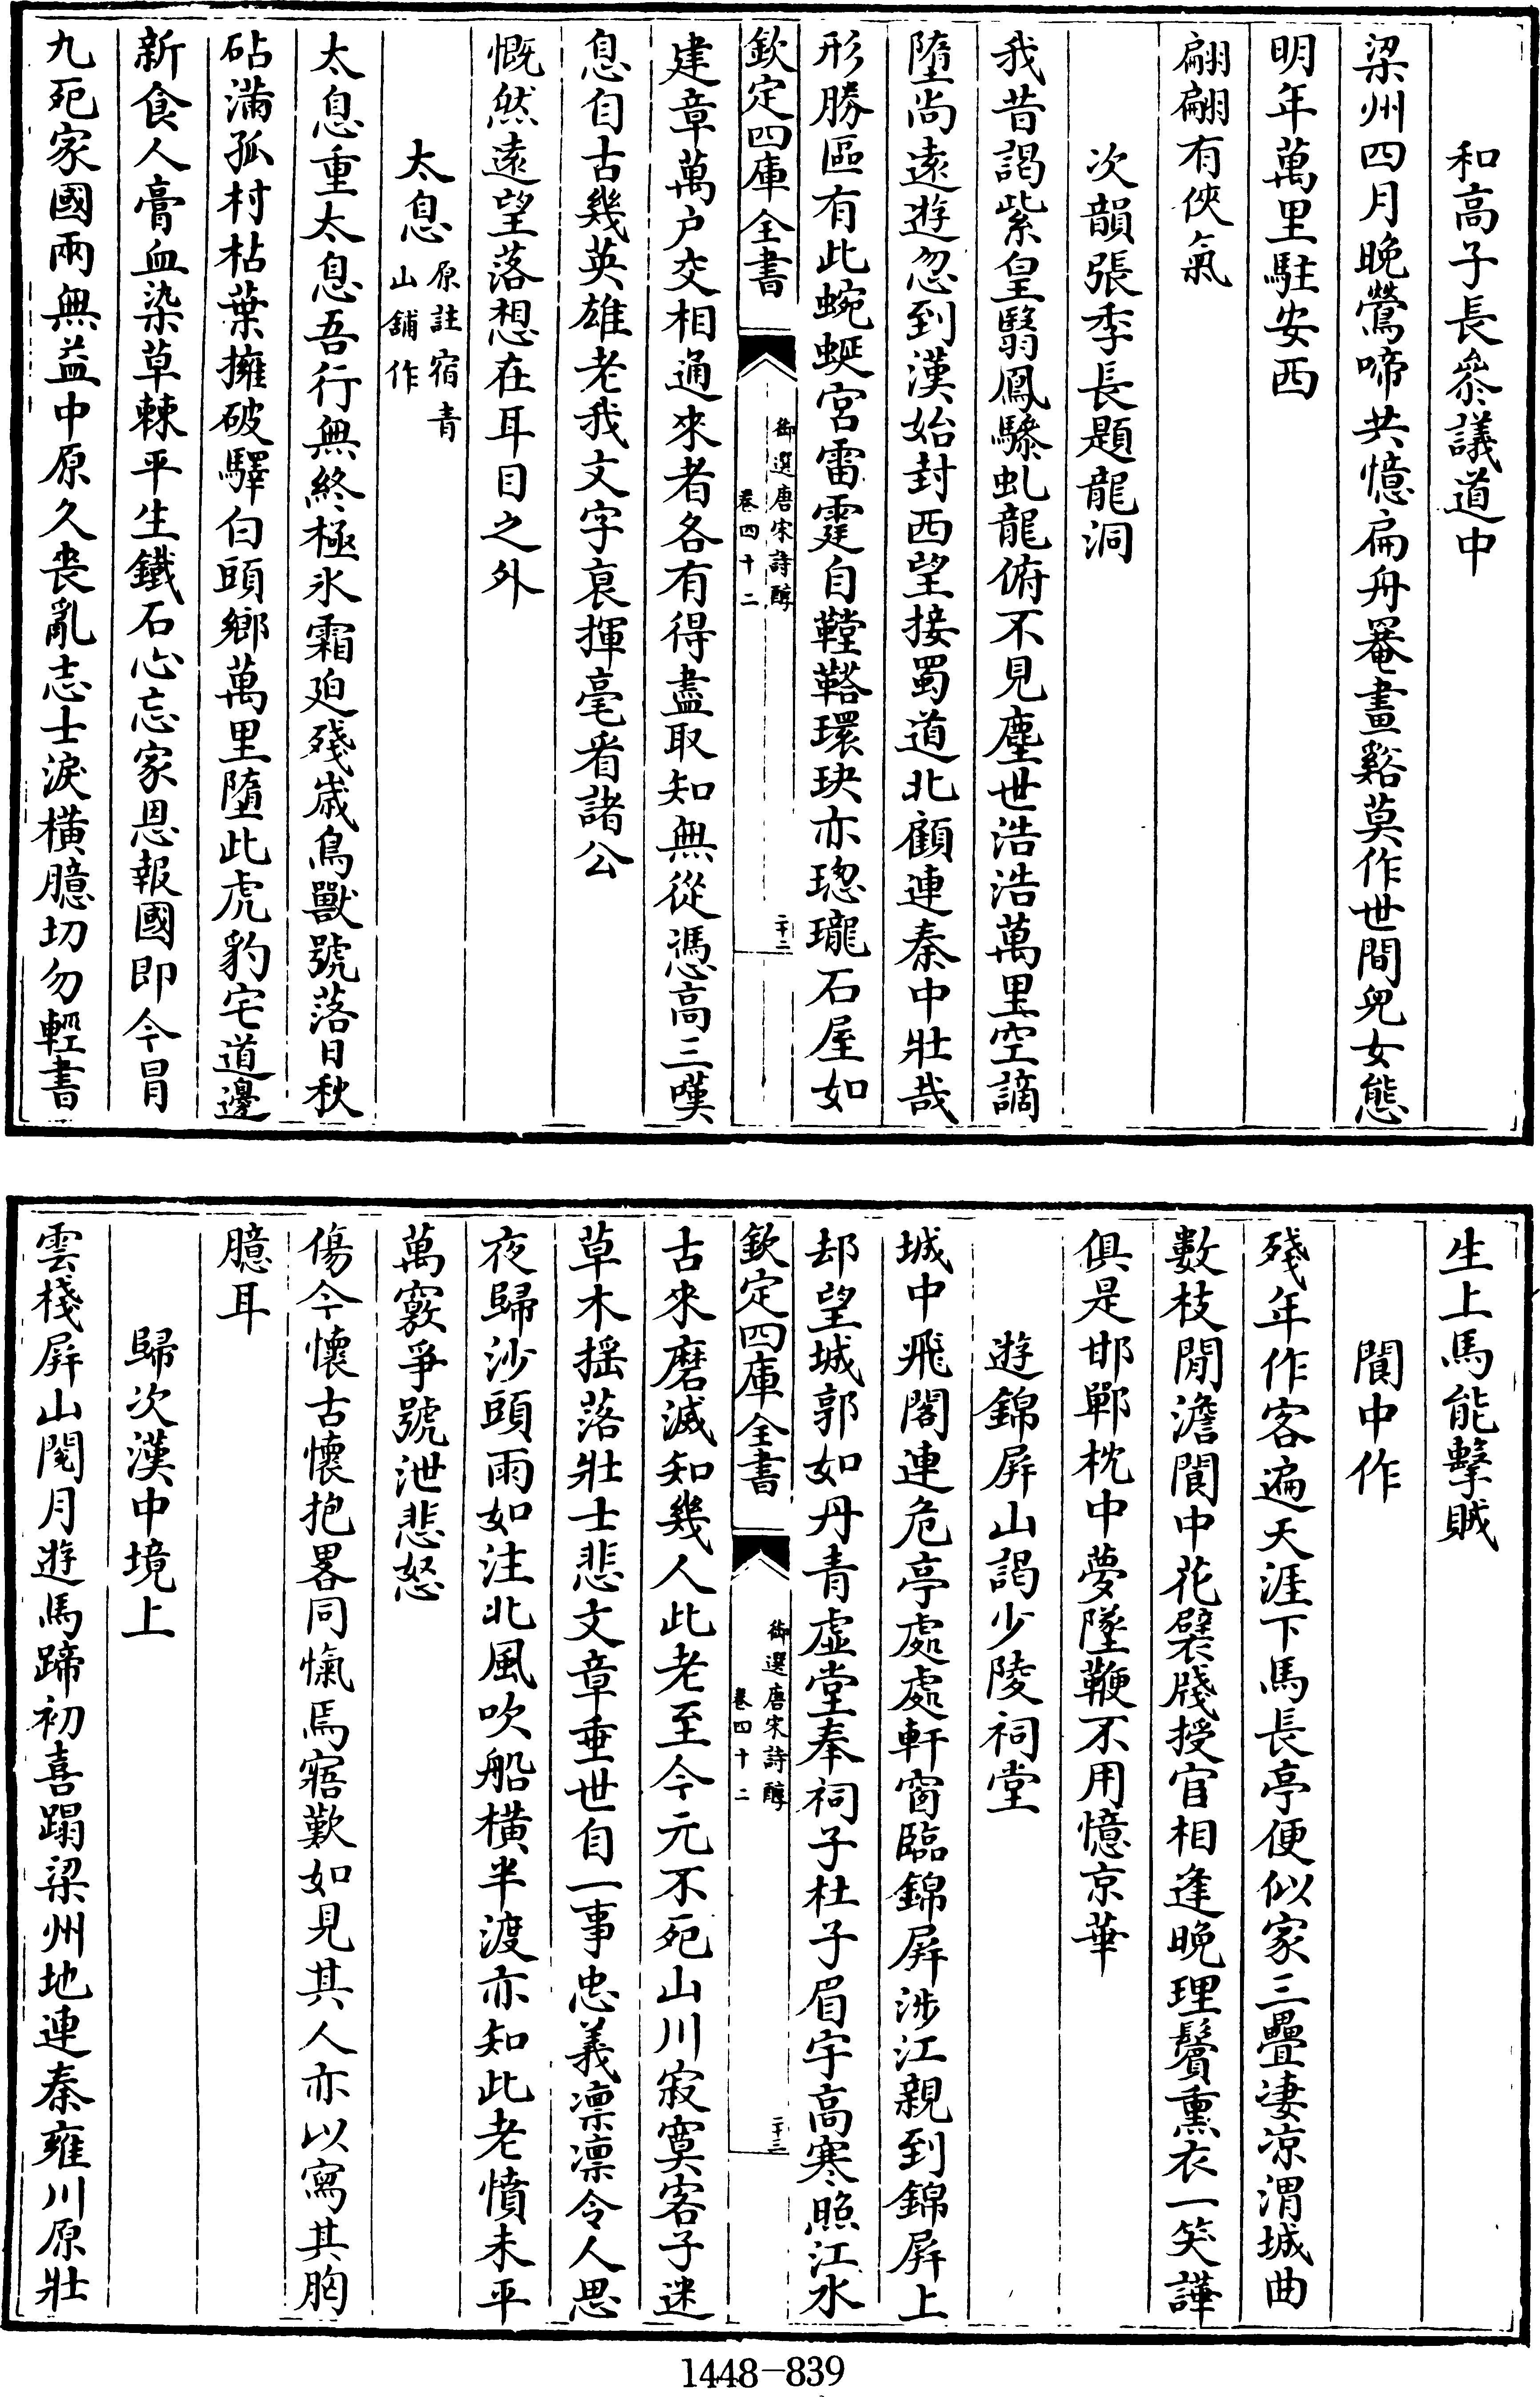 和高子長叅議道中
梁州四月晚鶯啼共憶扁舟罨畫谿莫作世間兒女態
明年萬里駐安西
翩翩有俠氣
次韻張季長題龍洞
我昔謁紫皇翳鳳驂虬龍俯不見塵世浩浩萬里空謫
墮尚遠遊忽到漢始封西望接蜀道北顧連秦中壯哉
形勝區有此蜿蜒宮雷霆自鞺鞳環玦亦璁瓏石屋如
欽定四庫全書
御選唐宋詩醇
卷四十二
二十二
建章萬户交相通來者各有得盡取知無從馮高三嘆
息自古幾英雄老我文字哀揮毫看諸公
慨然遠望落想在耳目之外
太息原註宿青山舖作
太息重太息吾行無終極氷霜廹殘嵗鳥獸號落日秋
砧滿孤村枯葉擁破驛白頭鄉萬里墮此虎豹宅道邊
新食人膏血染草棘平生鐵石心忘家思報國即今冒
九死家國兩無益中原久喪亂志士淚橫臆切勿輕書
生上馬能擊賊
閬中作
殘年作客遍天涯下馬長亭便似家三疊淒凉渭城曲
數枝閒澹閬中花襞牋授官相逢晚理鬢熏衣一笑譁
俱是邯鄲枕中夢墜鞭不用憶京華
遊錦屏山謁少陵祠堂
城中飛閣連危亭處處軒窗臨錦屏涉江親到錦屏上
却望城郭如丹青虚堂奉祠子杜子眉宇高寒照江水
欽定四庫全書
御選唐宋詩醇
卷四十二
二十三
古來磨滅知幾人此老至今元不死山川寂寞客子迷
草木摇落壯士悲文章垂世自一事忠義凛凛令人思
夜歸沙頭雨如注北風吹船橫半渡亦知此老憤未平
萬竅爭號泄悲怒
傷今懷古懷抱畧同愾焉寤歎如見其人亦以寫其胸
臆耳
歸次漢中境上
雲棧屏山閱月遊馬蹄初喜蹋梁州地連秦雍川原壯
1448-839